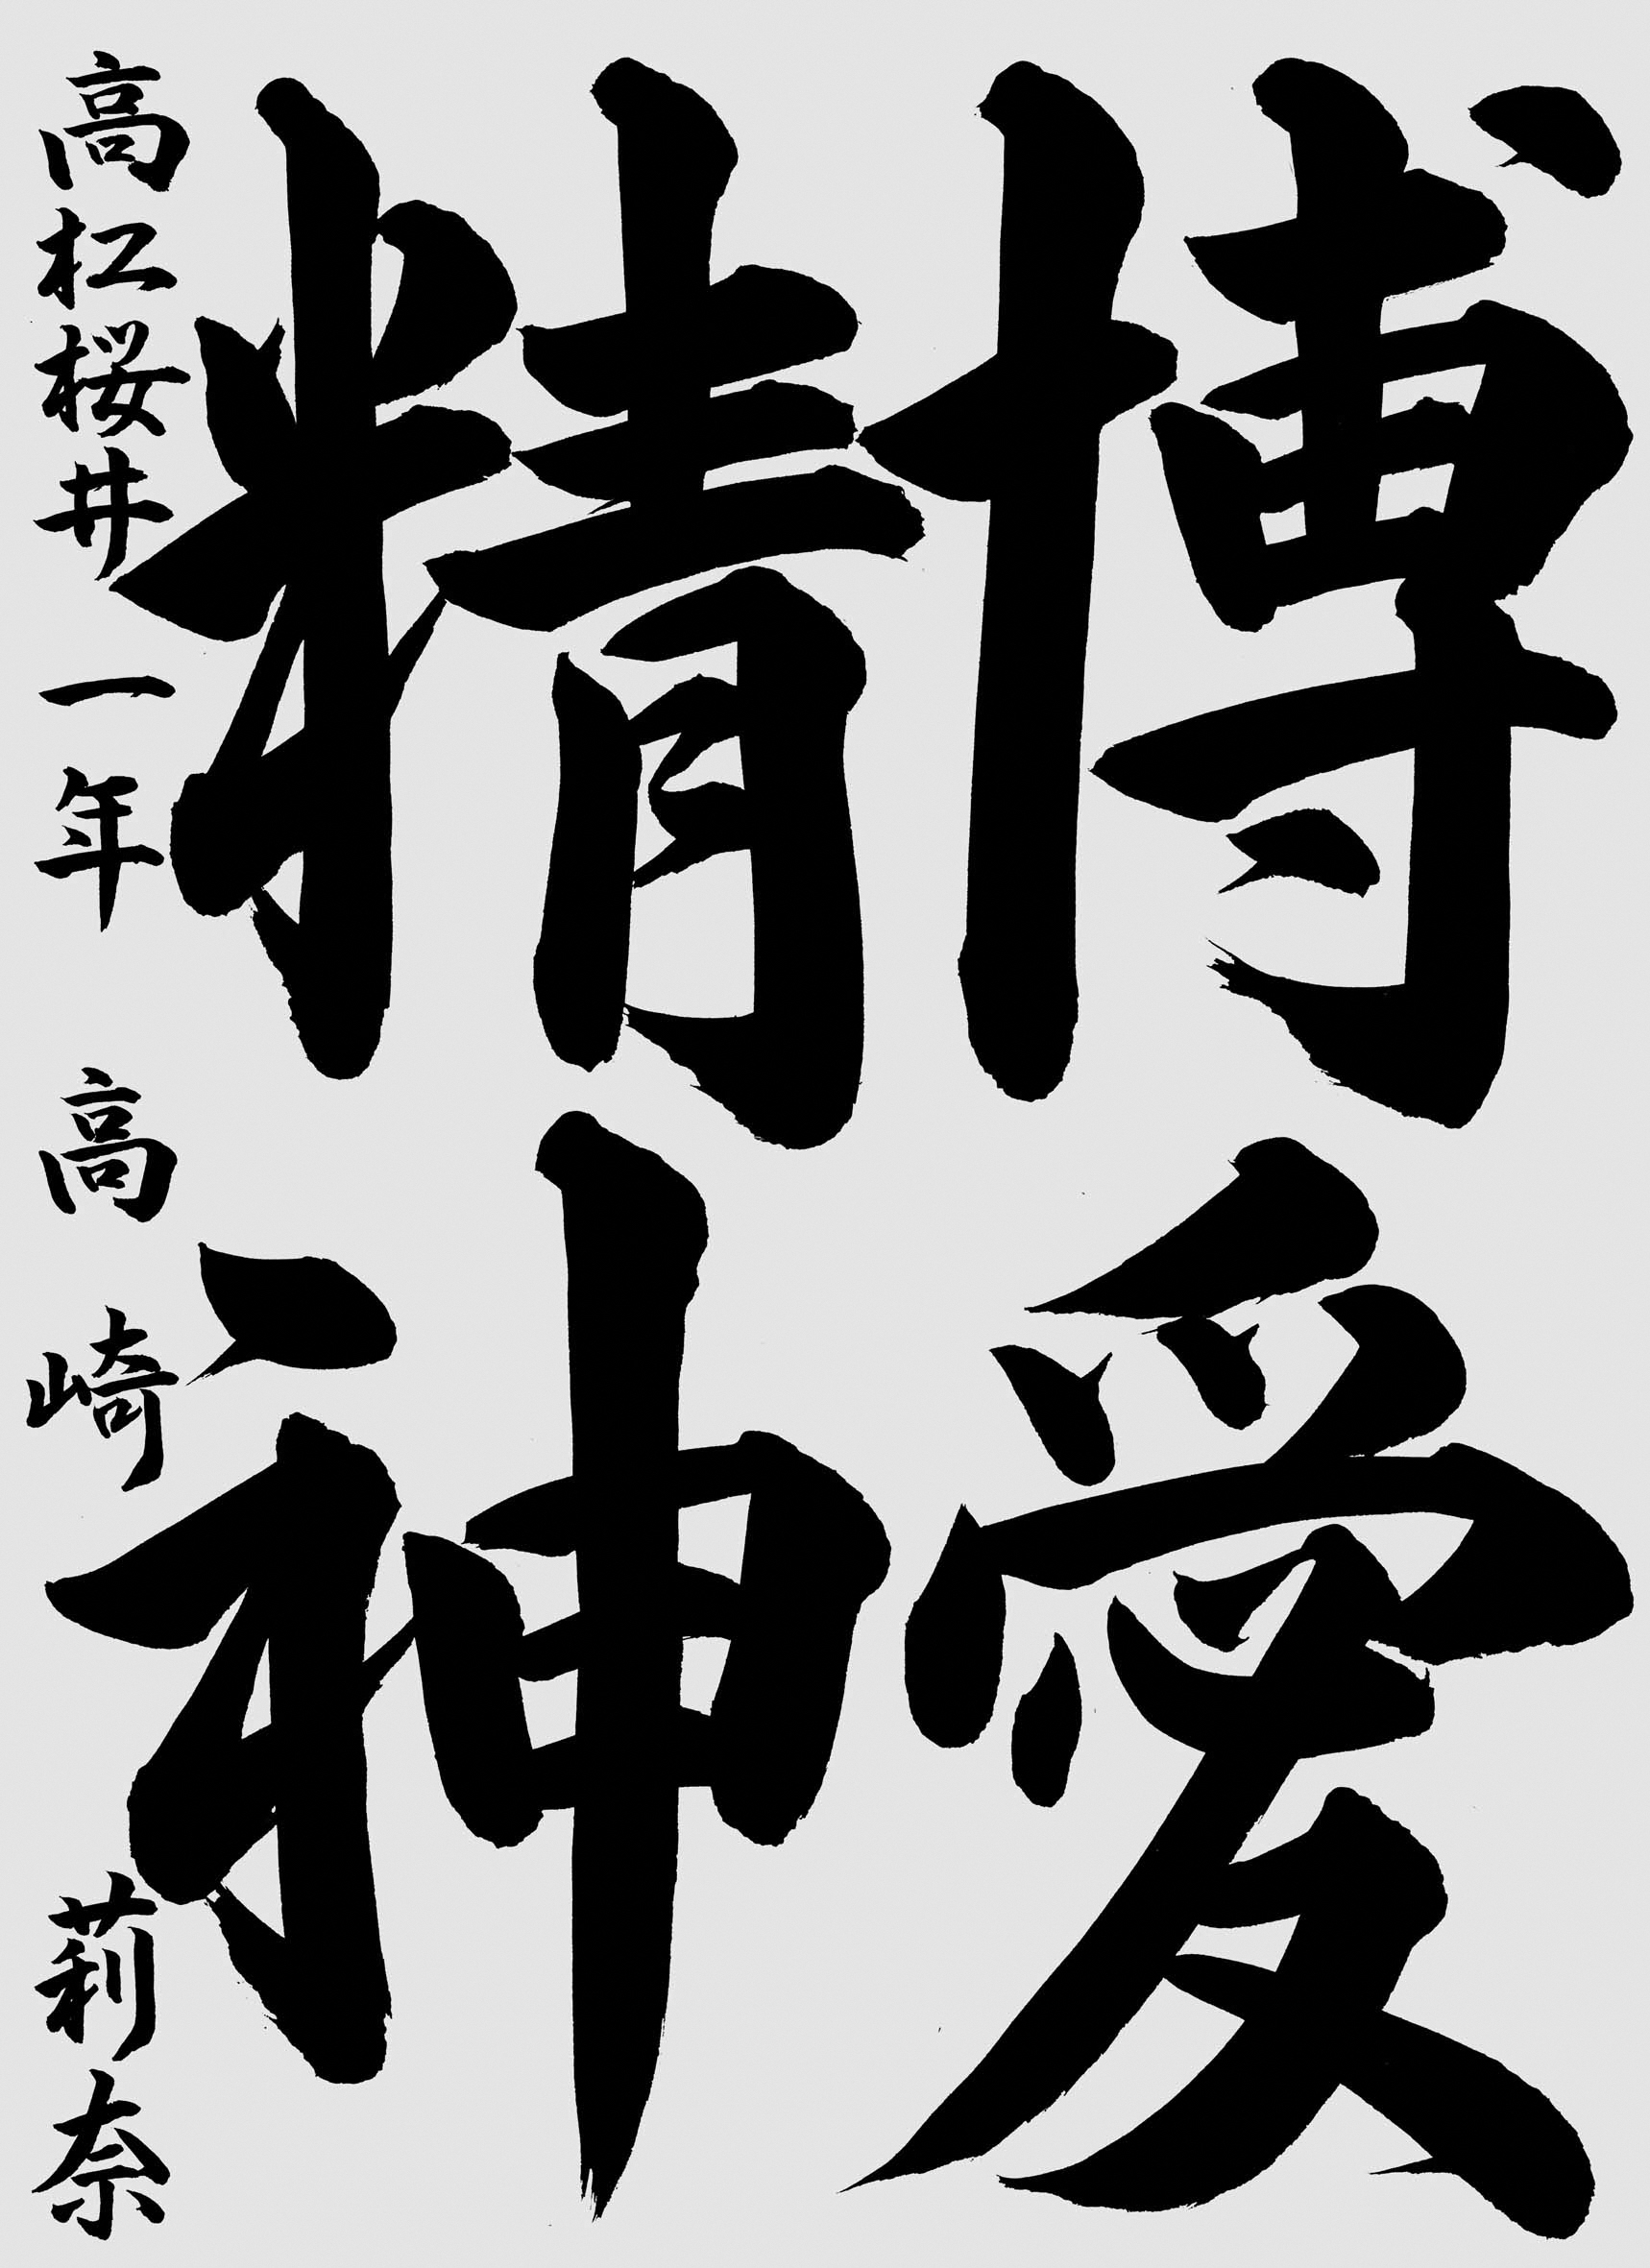 博愛
精神
高松桜井一年高崎莉奈